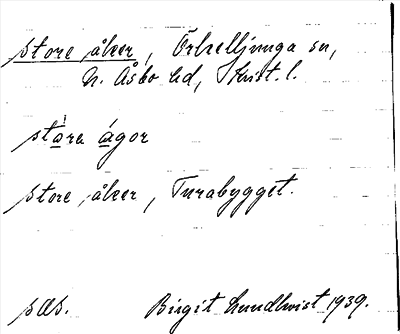 store åker, Örkelljunga sn,
N. Åsbo hd, Krist. l.
stára ágor
store åker, Turabygget.
sas.
Birgit Lundkvist 1939.